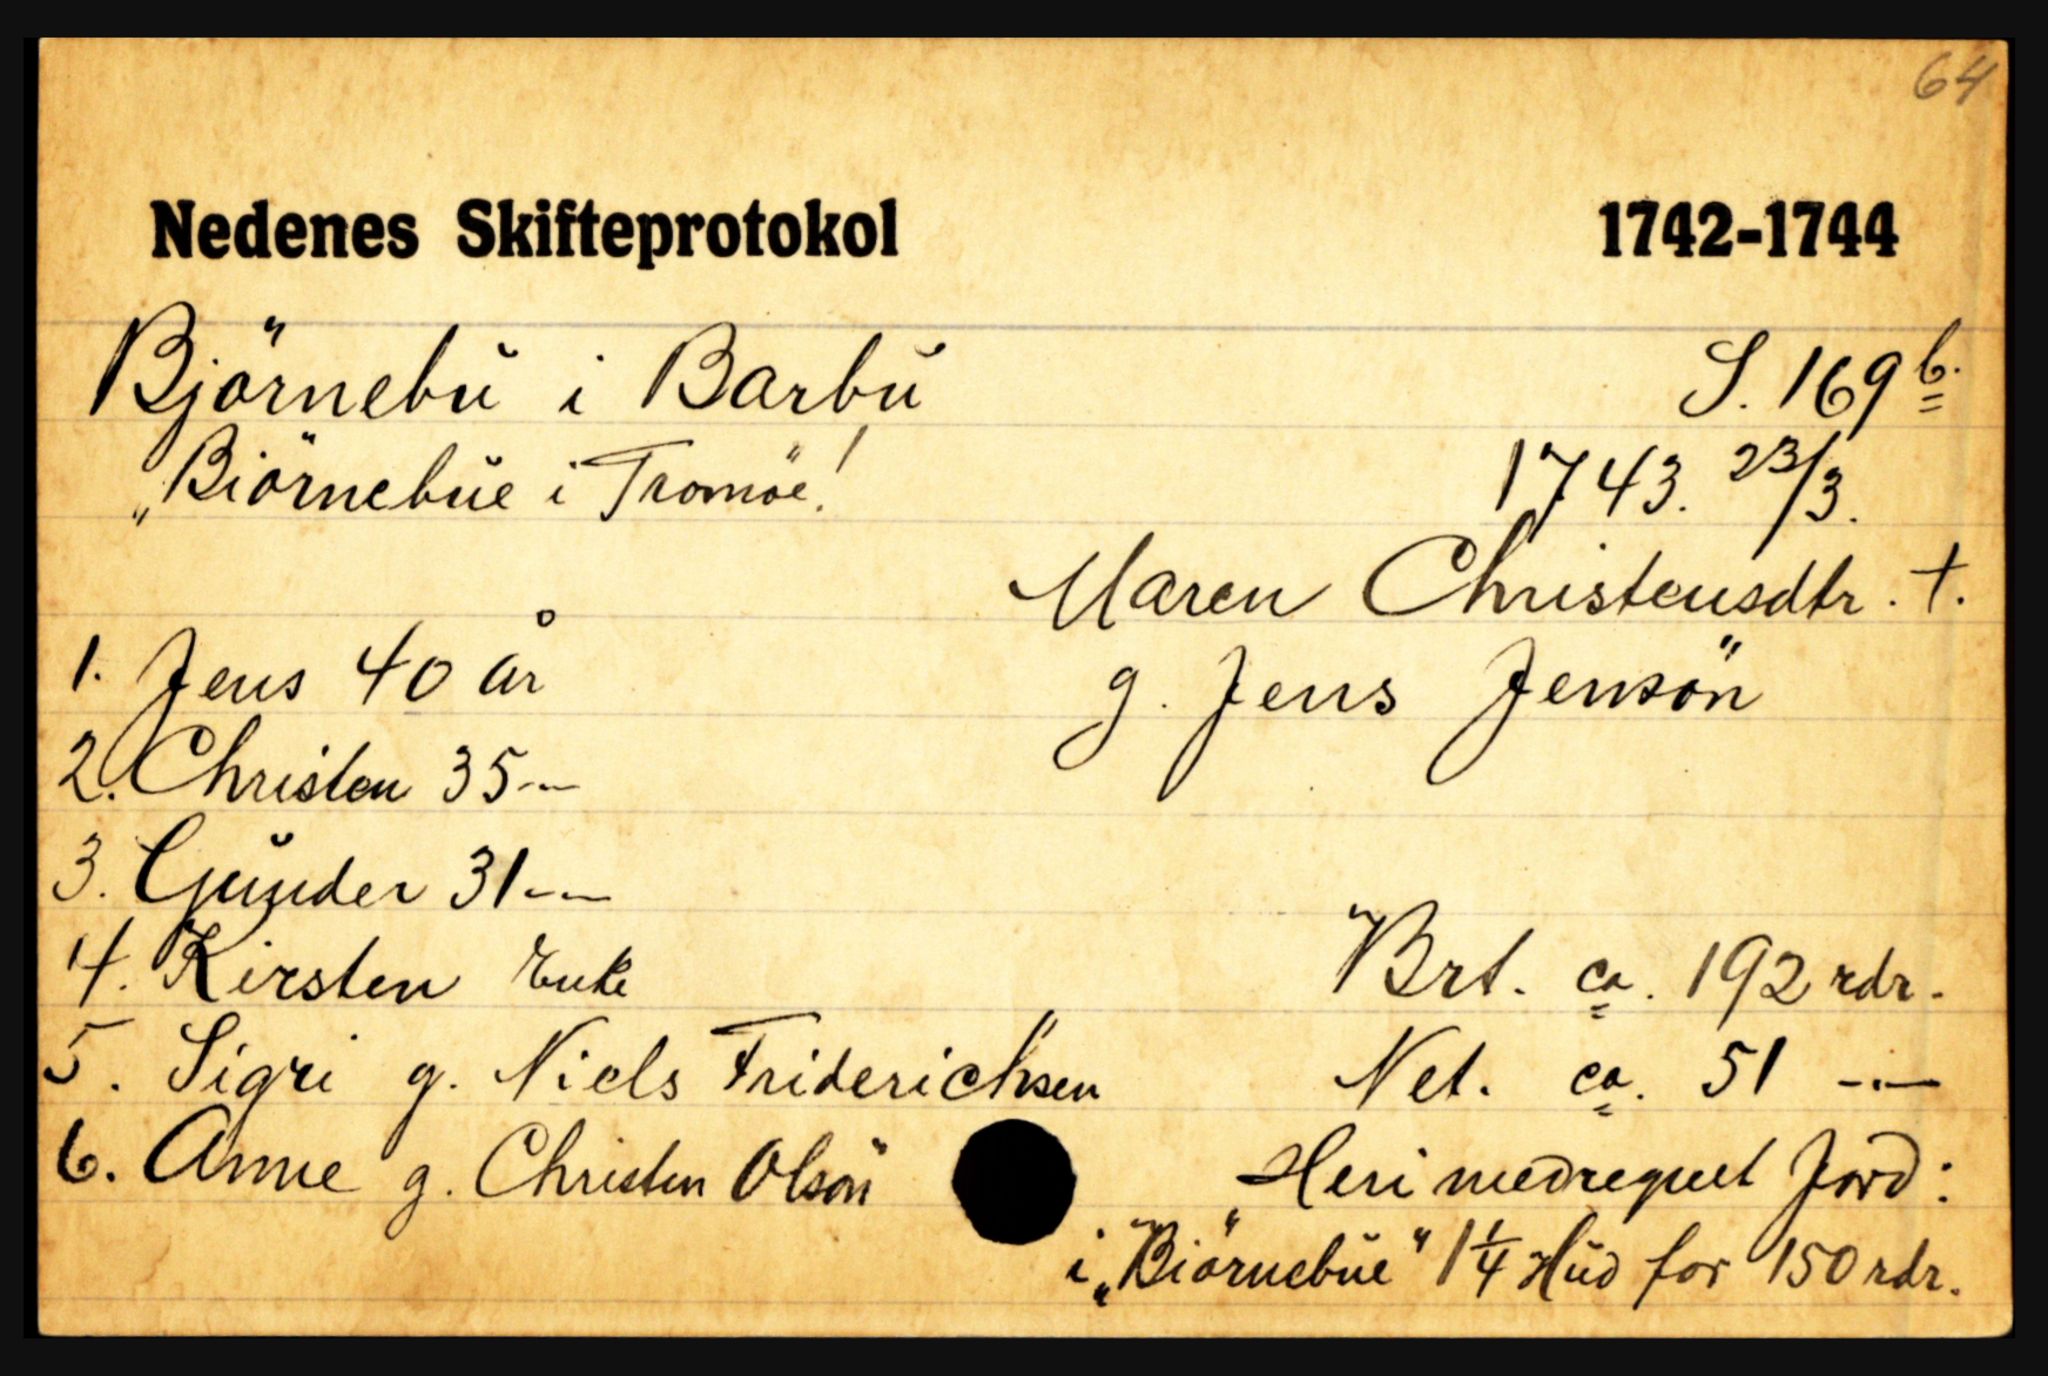 64
Nedenes Skifteprotokol 1742-1744
Björnebu i Barbu S. 169 b.
„Biörnebue i Tromöe! 1743. 23/3.
Maren Christensdtr. †.
1. Jens 40 år g. Jens Jensön
2. Christen 35 -"-
3. Gunder 31 -"-
4. Kirsten Enke Brt. ca. 192 rdr.
5. Sigri g. Niels Friderichsen Net. ca. 51 -"-
6. Anne g. Christen Olsön Heri medregnet Jord:
i „Biörnebue" 1 1/4 Hud for 150 rdr.